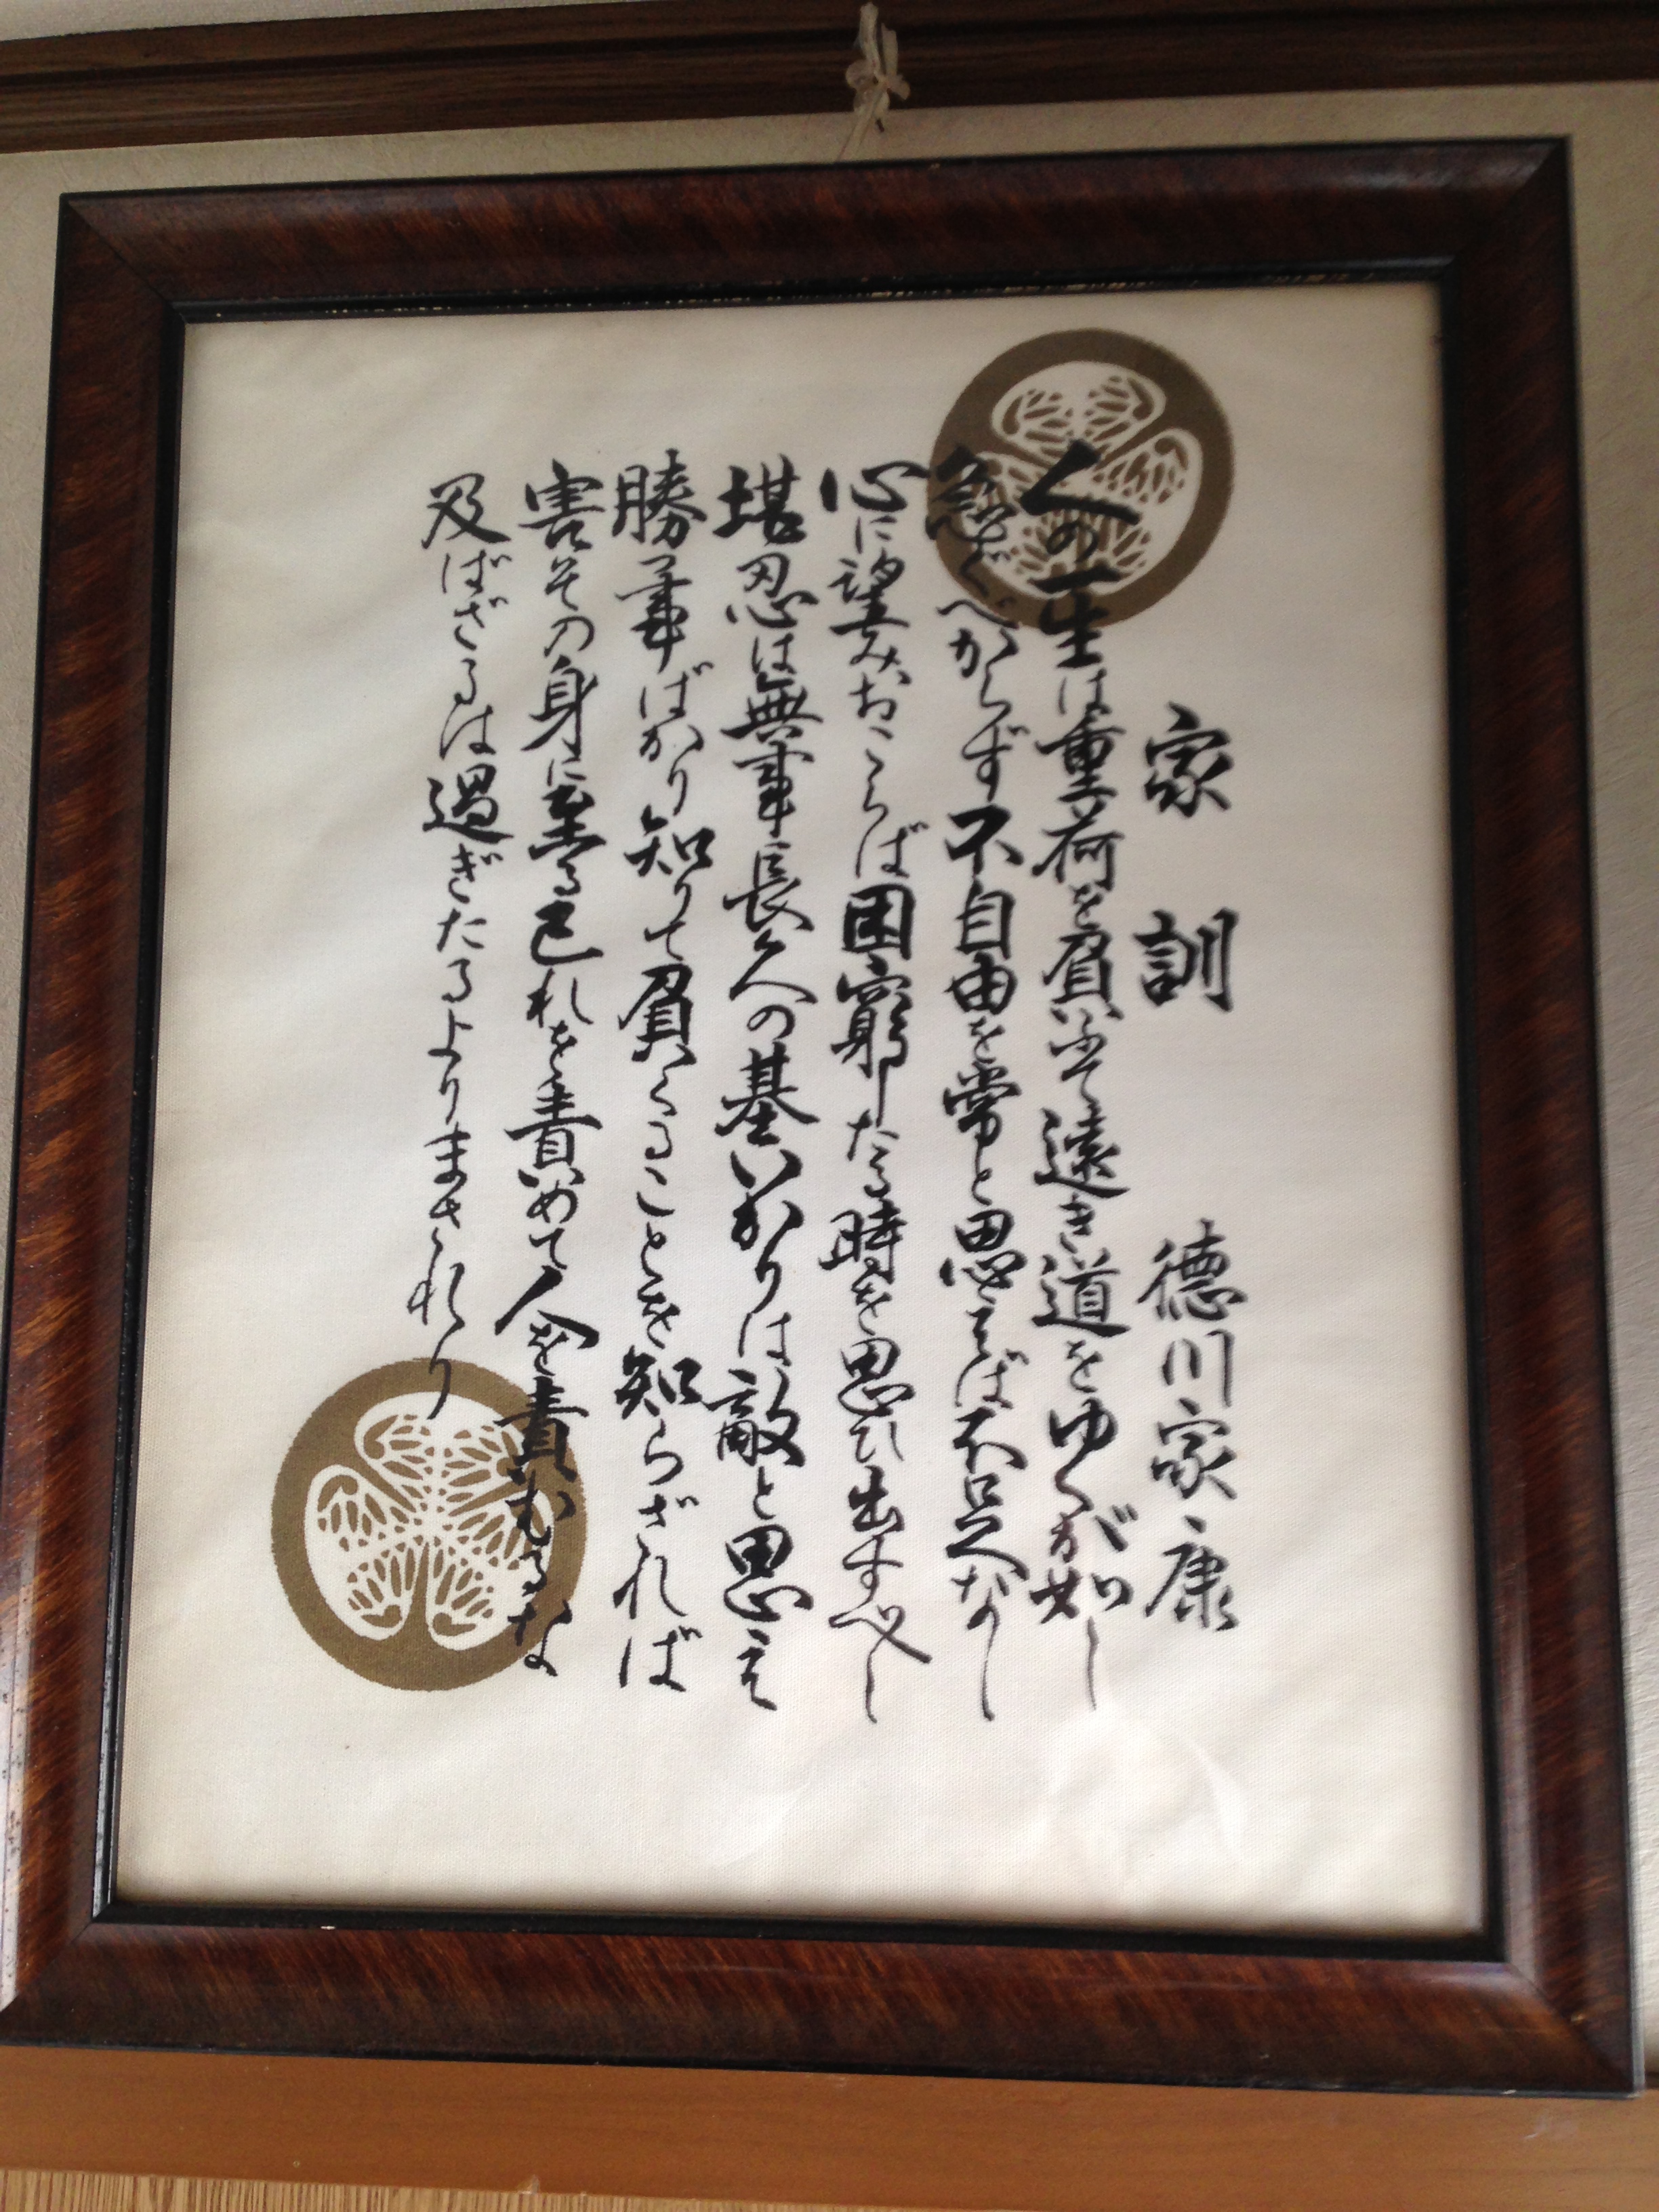 家訓 徳川家康
人の一生は重荷を負いて遠き道をゆくが如し
急ぐべからず不自由を常と思えば不足なし
心に望みおこらば困窮したる時を思ひ出すべし
堪忍は無事長久の基いかりは敵と思え
勝つ事ばかり知りて負くることを知らざれば
害その身に至る己れを責めて人を責むるな
及ばざるは過ぎたるよりまされり